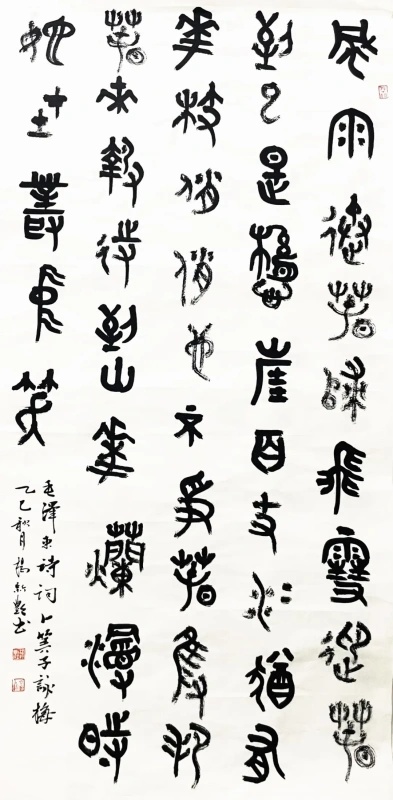 風雨送春歸飛雪迎春
到已是懸崖百丈冰猶有
華枝俏俏也不爭春隻把
春來報待到山華爛漫時
她在叢中笑
毛澤東詩詞卜算子詠梅
乙巳秋月楊書